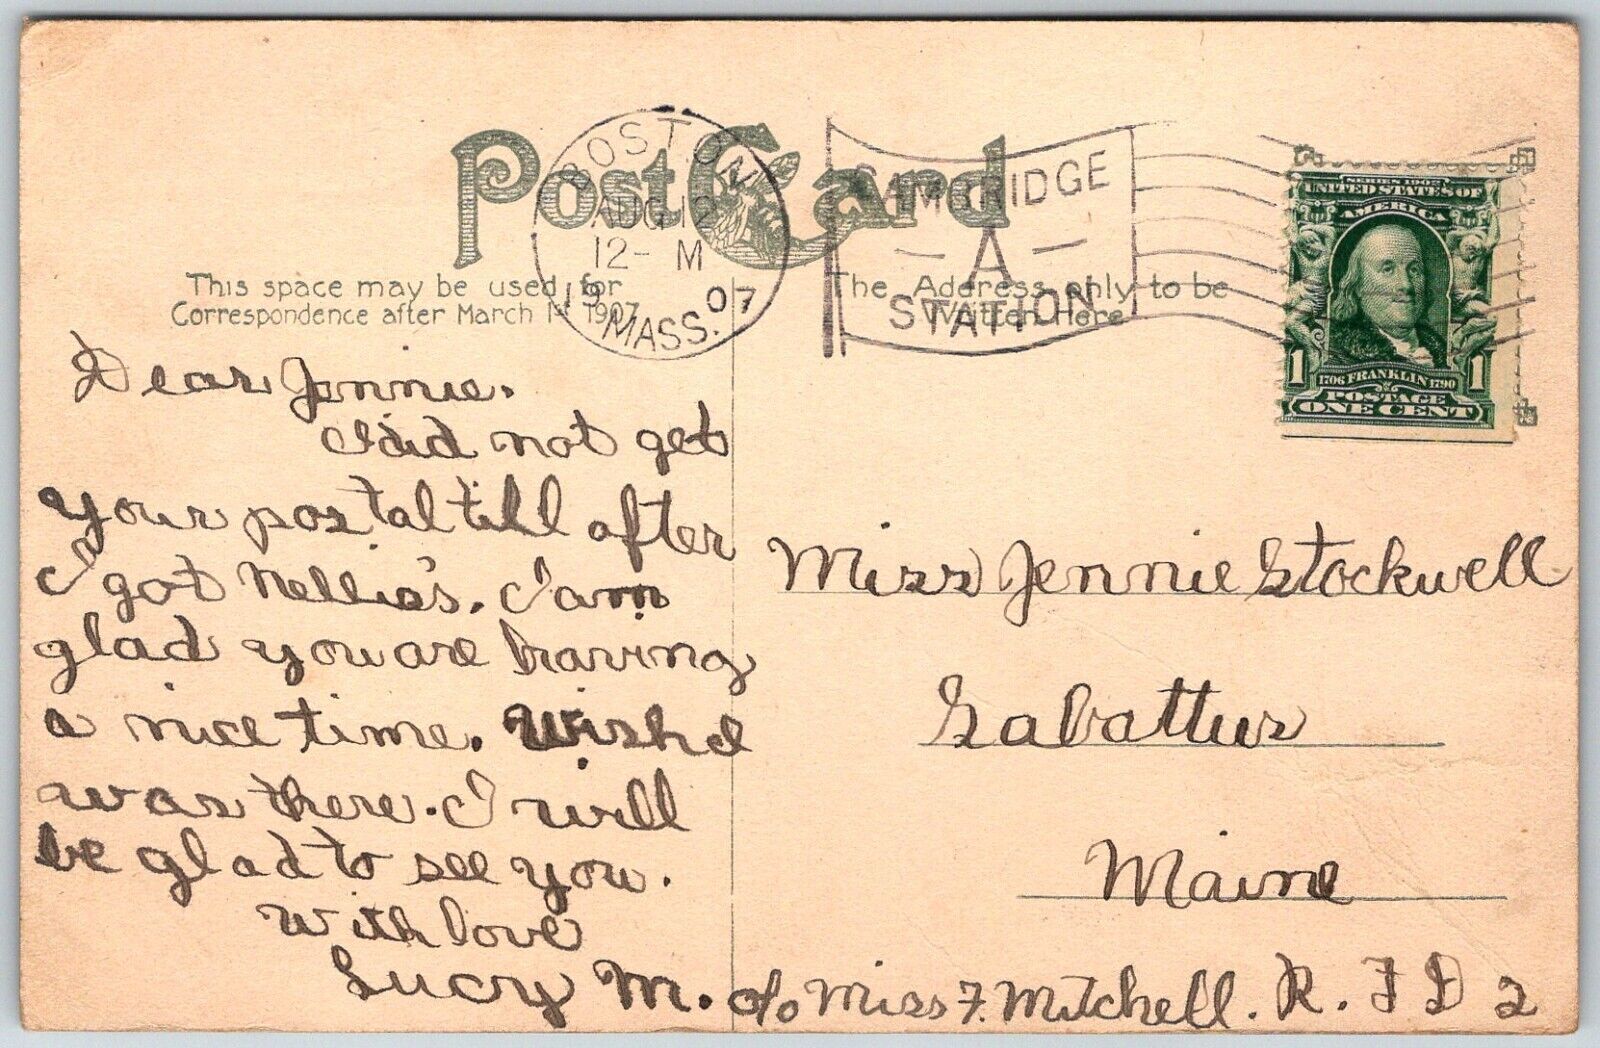 Post Card
BOSTON
AUG 12
12- M
19 07
MASS.
CAMBRIDGE
- A -
STATION
SERIES 1902
UNITED STATES OF
AMERICA
1 1
1706 FRANKLIN 1790
POSTAGE
ONE CENT
This space may be used for
Correspondence after March 1st 1907
The Address only to be
Written Here
Dear Jennie.
I did not get
your postal till after
I got Nellie's. I am
glad you are having
a nice time. Wish I
was there. I will
be glad to see you.
With love
Lucy M.
Miss Jennie Stockwell
Sabattus
Maine
c/o Miss F. Mitchell. R. F D 2